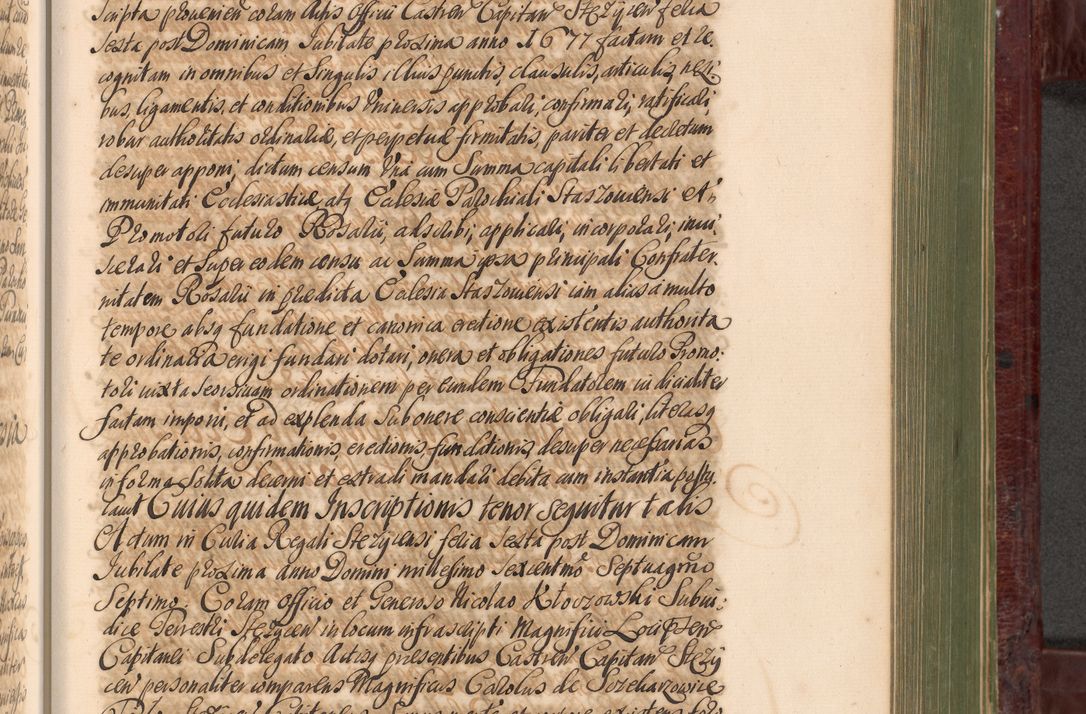 scripta provenien coram Actis Officii Castren Capitan Stezycen feria
sexta post Dominicam Jubilate proxima anno 1677 factam et re
cognitam in omnibus et singulis illius punctis, clausulis, articulis, nexi
bus, ligamentis, et conditionibus approbari, confirmari, ratificari,
robur authoritatis ordinariæ, et perpetuæ firmitatis, pariter et decretum
desuper apponi, dictum censum una cum Summa capitali libertati et
immunitati Ecclesiasticæ, atq Ecclesiæ Parochiali Staszoviensi et
Promotori futuro Rosarii, adscribi, applicari, incorporari, invi
scerari et super eodem censu ac Summa ipsa principali Confrater
nitatem Rosarii in prædicta Ecclesia Staszoviensi iam alias a multo
tempore absq fundatione et canonica erectione existentis authorita
te ordinaria erigi fundari dotari, onera et obligationes futuro Promo:
tori iuxta seorsivam ordinationem per eundem Fundatorem iudicialiter
factam imponi, et ad explenda sub onere conscientiæ obligari, literasq
approbationis, confirmationis, erectionis, fundationis, desuper necessarias
in forma solita decerni et extradi mandari debita cum instantia postu
lavit Cuius quidem Inscriptionis tenor sequitur talis
Actum in Curia Regali Stezycensi feria sexta post Dominicam
Jubilate proxima anno Domini millesimo sexcentmo Septuagmo
Septimo. Coram Officio et Generoso Nicolao Kłoczowski Subiu:
dice Terrestri Stezycen in locum infrascripti Magnifici
Capitanei Subdelegato Actisq præsentibus Castren Capitan Stezy
cen personaliter comparens Magnificus Carolus de